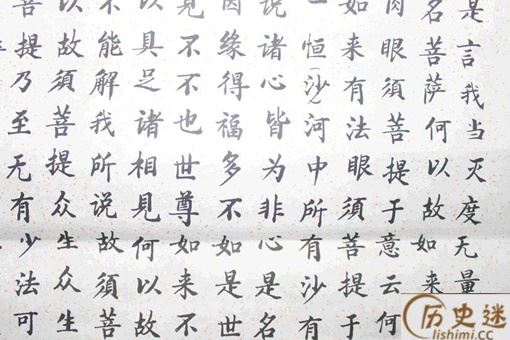 是言我当灭度无量
名菩萨何以故如来
肉眼須菩提于意云何
如来有法眼須菩提于
一恒(沙)河中所有沙有
说诸心皆为非心是名
因缘得福多不如是世
見不不也世尊如来不
以具足诸相見何以故
不能解我所说故須菩
以故須菩提众生众生
菩提乃至无有少法可
历史迷
lishimi.cc